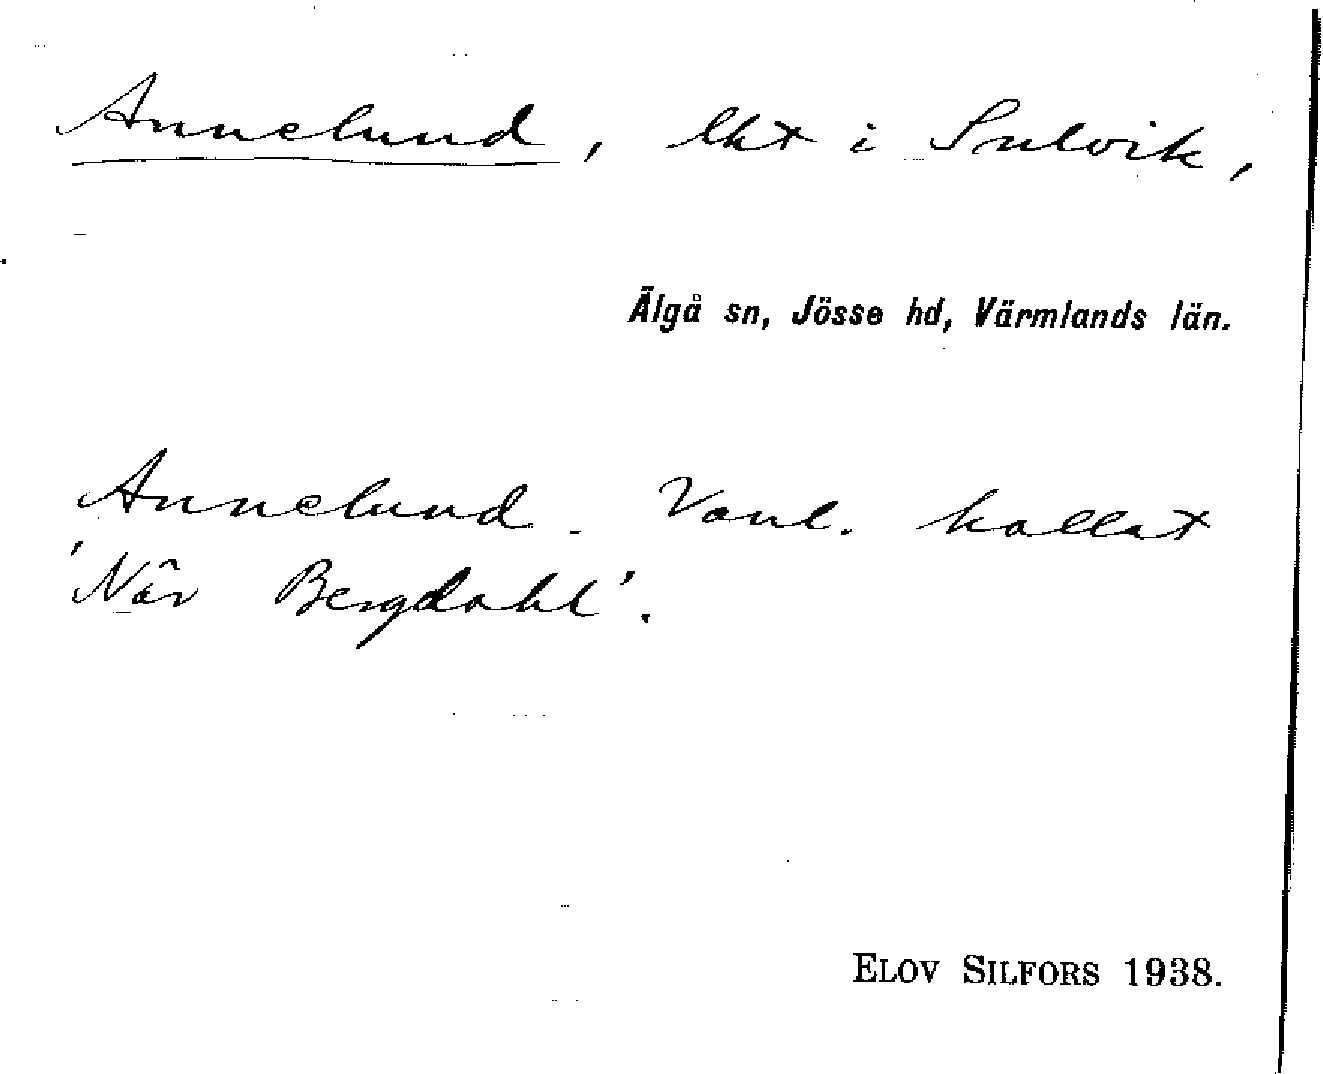 Annelund, lht i Sulvik,
Älgå sn, Jösse hd, Värmlands län.
Annelund. Vanl. kallat
'När Bergdahl'.
ELOV SILFORS 1938.